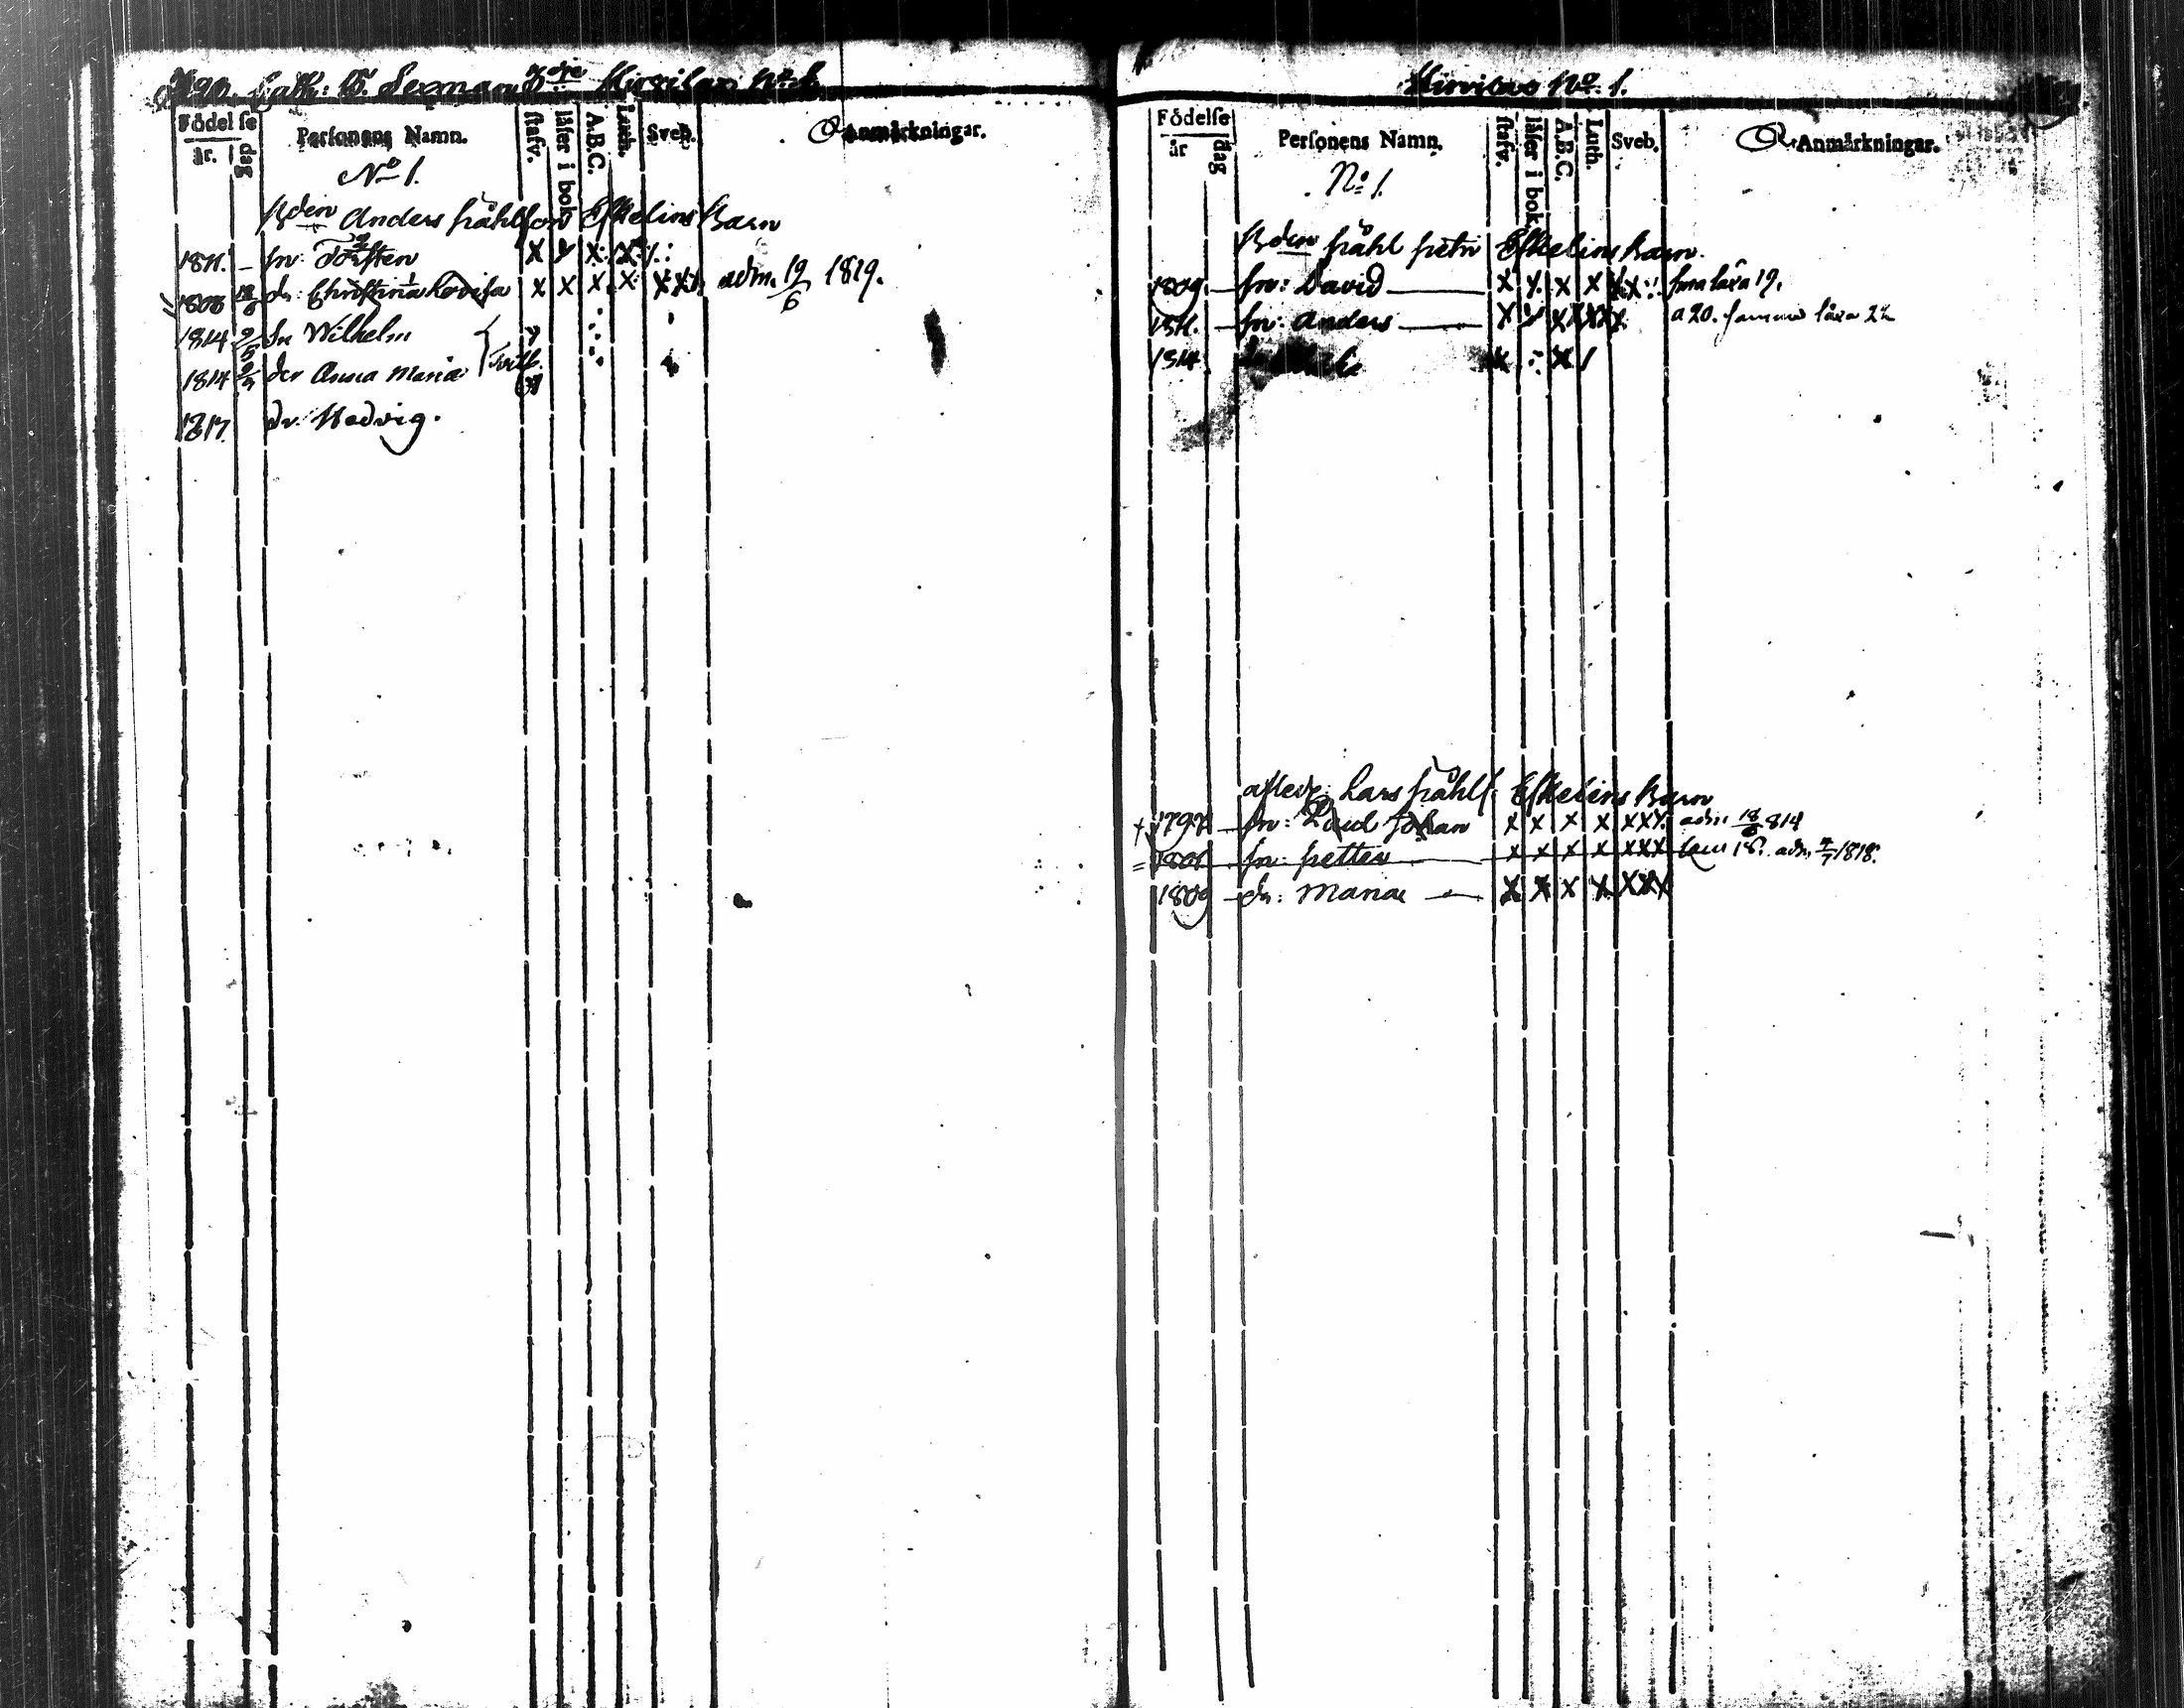 Hirvilax No. 1.
Födelse
år. dag
Personens Namn.
stafv.
läser i bok.
A.B.C.
Luth.
Sveb.
Anmärkningar.
No 1.
Bden Anders Påhlsson Eskelins Barn
1811. – sn: Torsten X X X X
1803 dr: Christina Lovisa X X X X XXX adm. 19/6 1819.
1814 2/5 sn Wilhelm
1814 2/5 dr Anna Maria
1817. dr. Hedvig.
Hirvilax No. 1.
Födelse
år dag
Personens Namn.
stafv.
läser i bok.
A.B.C.
Luth.
Sveb.
Anmärkningar.
No 1.
Bden Påhl Petri Eskelins Barn.
1809. – sn: David X X X X läxa 19.
1811. – sn: Anders X a 20. samma läxa
1814.
Lars Påhls. Eskelins Barn
1797 – sn: Johan X X X X XXX adm 18/6 814
1801 – sn: Petter X X X X XXX adm. 1818.
1809 – dr: Maria X X X X XXX